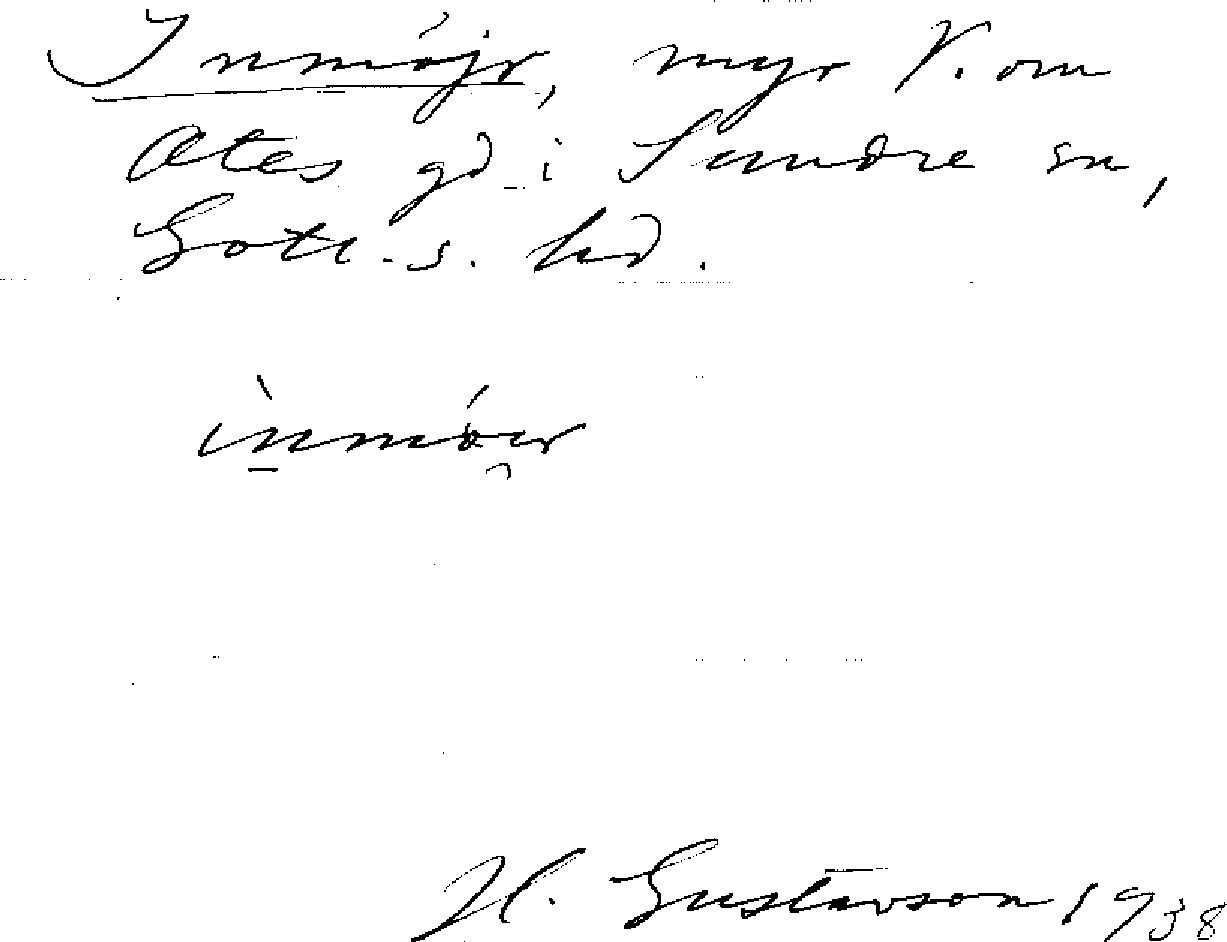 Inmójr, myr V. om
Otes gd i Sundre sn,
Gotl. s. hd.
ìnmóir
H. Gustavson 1938